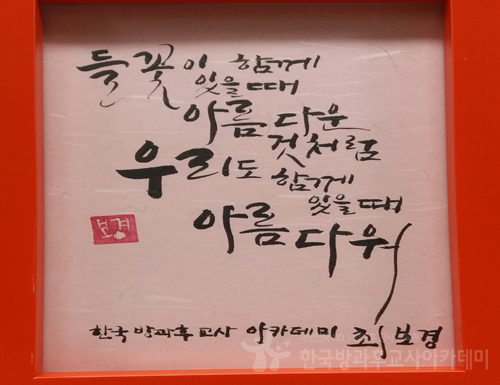 들꽃이 함께
있을때
아름다운
것처럼
우리도 함께
있을때
아름다워
보경
한국방과후교사 아카데미 최보경
한국방과후교사아카데미